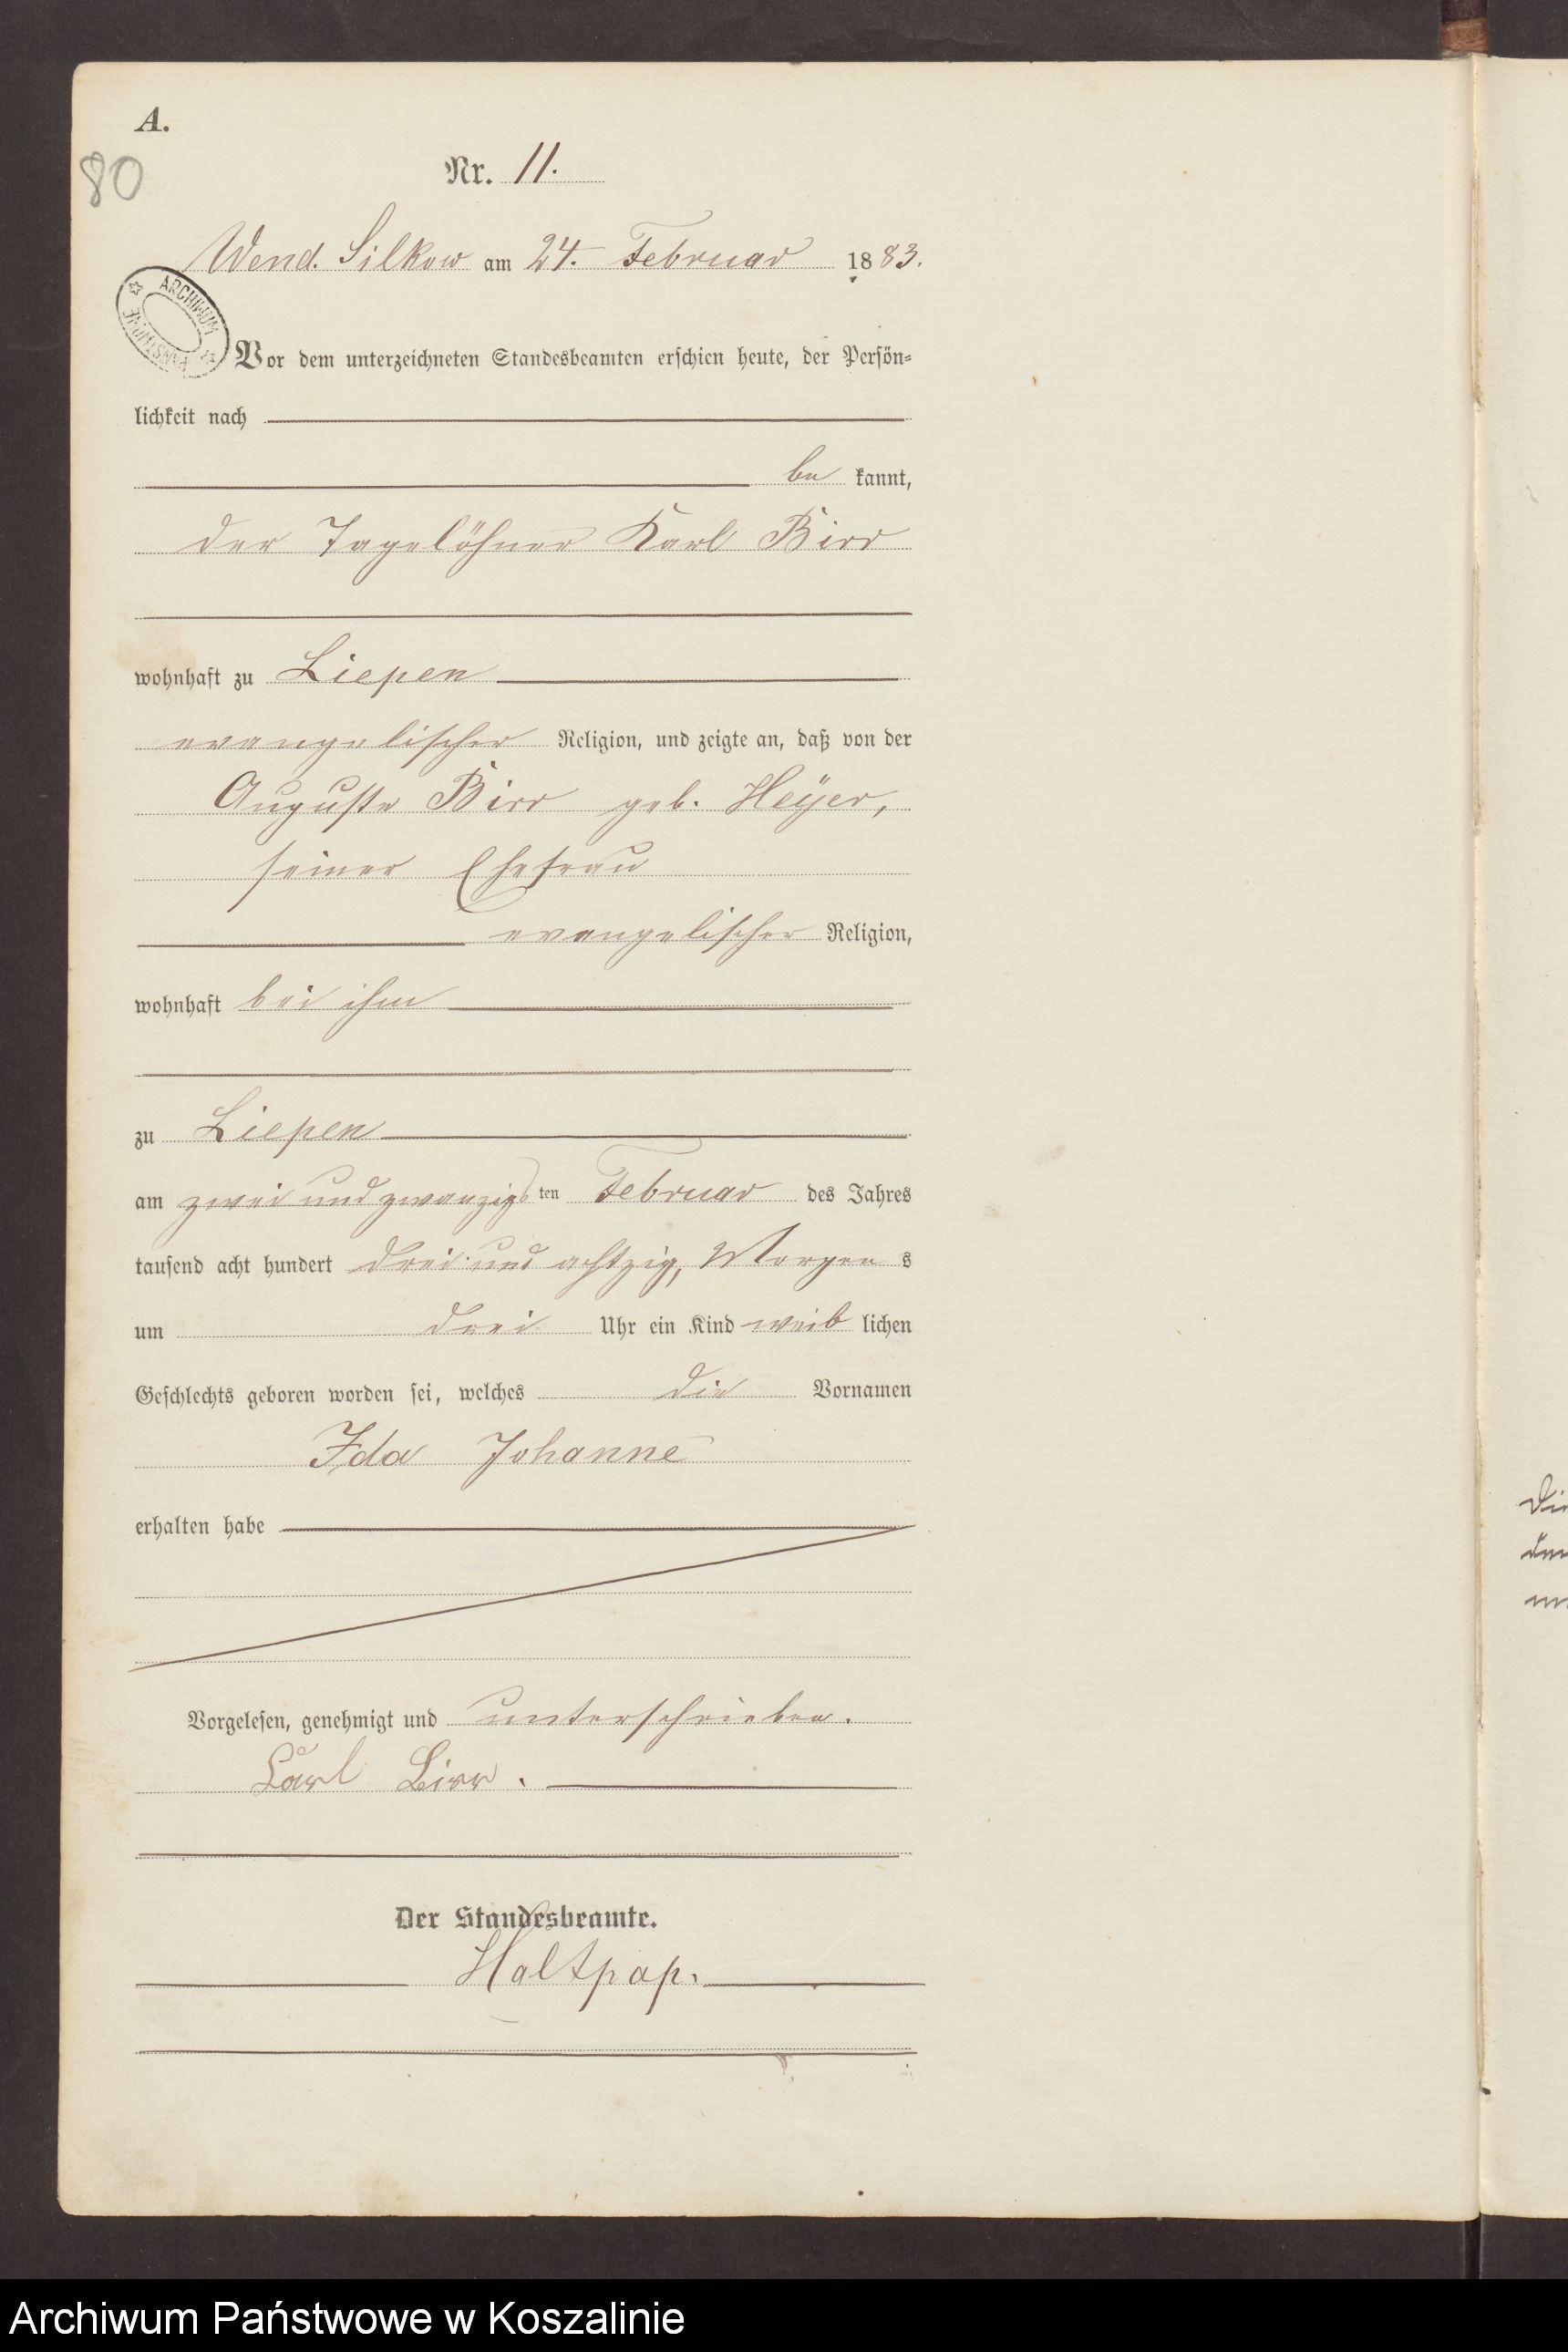 A.
80
Nr. 11.
Wend. Silkow am 24. Februar 1883.
ARCHIWUM PAŃSTWOWE
Vor dem unterzeichneten Standesbeamten erschien heute, der Persön-
lichkeit nach
be kannt,
der Tagelöhner Karl Birr
wohnhaft zu Liepen
evangelischer Religion, und zeigte an, daß von der
Auguste Birr geb. Heÿer,
seiner Ehefrau
evangelischer Religion,
wohnhaft bei ihm
zu Liepen
am zwei und zwanzigsten Februar des Jahres
tausend acht hundert drei und achtzig, Morgens
um drei Uhr ein Kind weiblichen
Geschlechts geboren worden sei, welches die Vornamen
Ida Johanne
erhalten habe
Vorgelesen, genehmigt und unterschrieben.
Karl Birr.
Der Standesbeamte.
Holtpap.
Archiwum Państwowe w Koszalinie